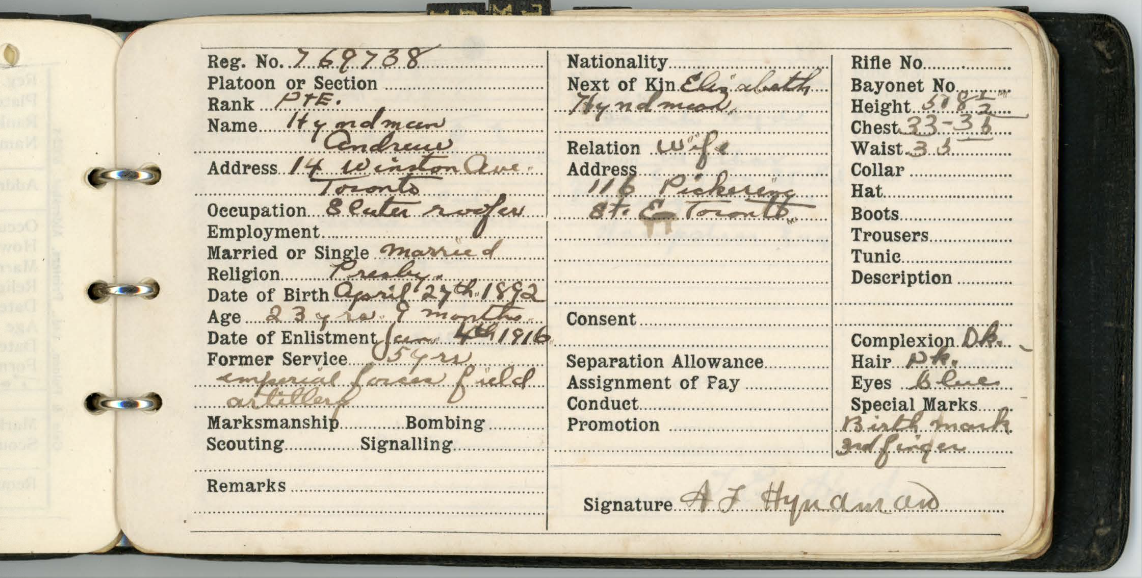 Reg. No. 769738
Platoon or Section
Rank Pte.
Name Hyndman
Andrew
Address 14 Winston Ave.
Toronto
Occupation Slater roofer
Employment
Married or Single Married
Religion Presby.
Date of Birth April 27th 1892
Age 23 yrs. 9 months.
Date of Enlistment Jan 4th 1916
Former Service 5 yrs
imperial forces field
artillery
Marksmanship Bombing
Scouting Signalling
Remarks
Nationality
Next of Kin Elizabeth
Hyndman
Relation Wife
Address
116 Pickering
St. E Toronto
Consent
Separation Allowance
Assignment of Pay
Conduct
Promotion
Rifle No.
Bayonet No.
Height
Chest
Waist
Collar
Hat
Boots
Trousers
Tunic
Description
Complexion Dk.
Hair Dk.
Eyes blue
Special Marks
Birth mark
3rd finger
Signature A J Hyndman